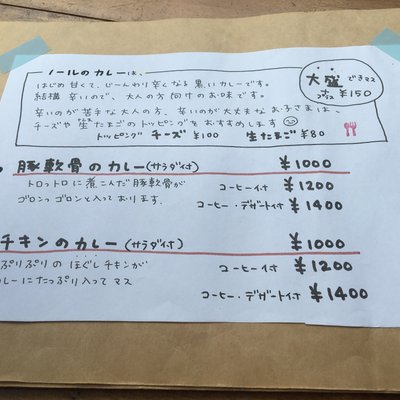 ノールのカレーは、
はじめ甘くて、じーんわり辛くなる黒いカレーです。
結構 辛いので、大人の方向けのお味です。
辛いのが苦手な大人の方、辛いのが大丈夫なお子さまは、
チーズや生たまごのトッピングをおすすめします
トッピング チーズ ¥100 生たまご ¥80
大盛できマス
プラス ¥150
豚軟骨のカレー(サラダ付) ¥1000
トロットロに煮こんだ豚軟骨が コーヒー付 ¥1200
ゴロンっゴロンと入っております。 コーヒー・デザート付 ¥1400
チキンのカレー(サラダ付) ¥1000
ぷりぷりの ほぐしチキンが コーヒー付 ¥1200
レーにたっぷり入ってマス コーヒー・デザート付 ¥1400